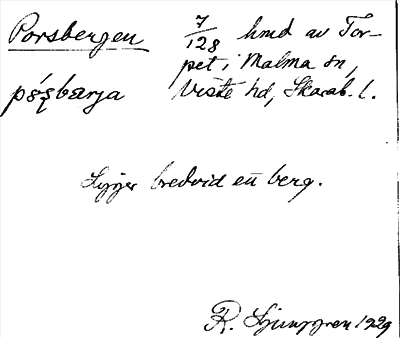 Porsbergen
7/128 hmd av Tor-
pet i Malma sn,
Viste hd, Skarab. l.
Ligger bredvid ett berg.
R. Ljunggren 1929